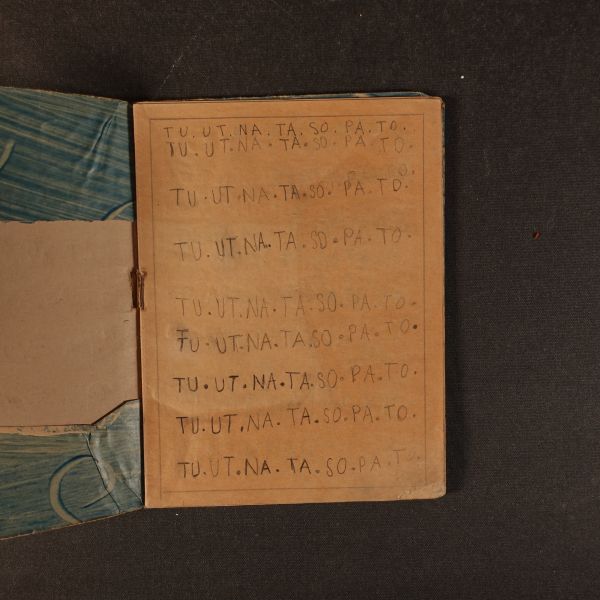 TU. UT. NA. TA. SO. PA. TO.
TU. UT. NA. TA. SO. PA. TO.
TU. UT. NA. TA. SO. PA. TO.
TU. UT. NA. TA. SO. PA. TO.
TU. UT. NA. TA. SO. PA. TO.
TU. UT. NA. TA. SO. PA. TO.
TU. UT. NA. TA. SO. PA. TO.
TU. UT. NA. TA. SO. PA. TO.
TU. UT. NA. TA. SO. PA. TO.